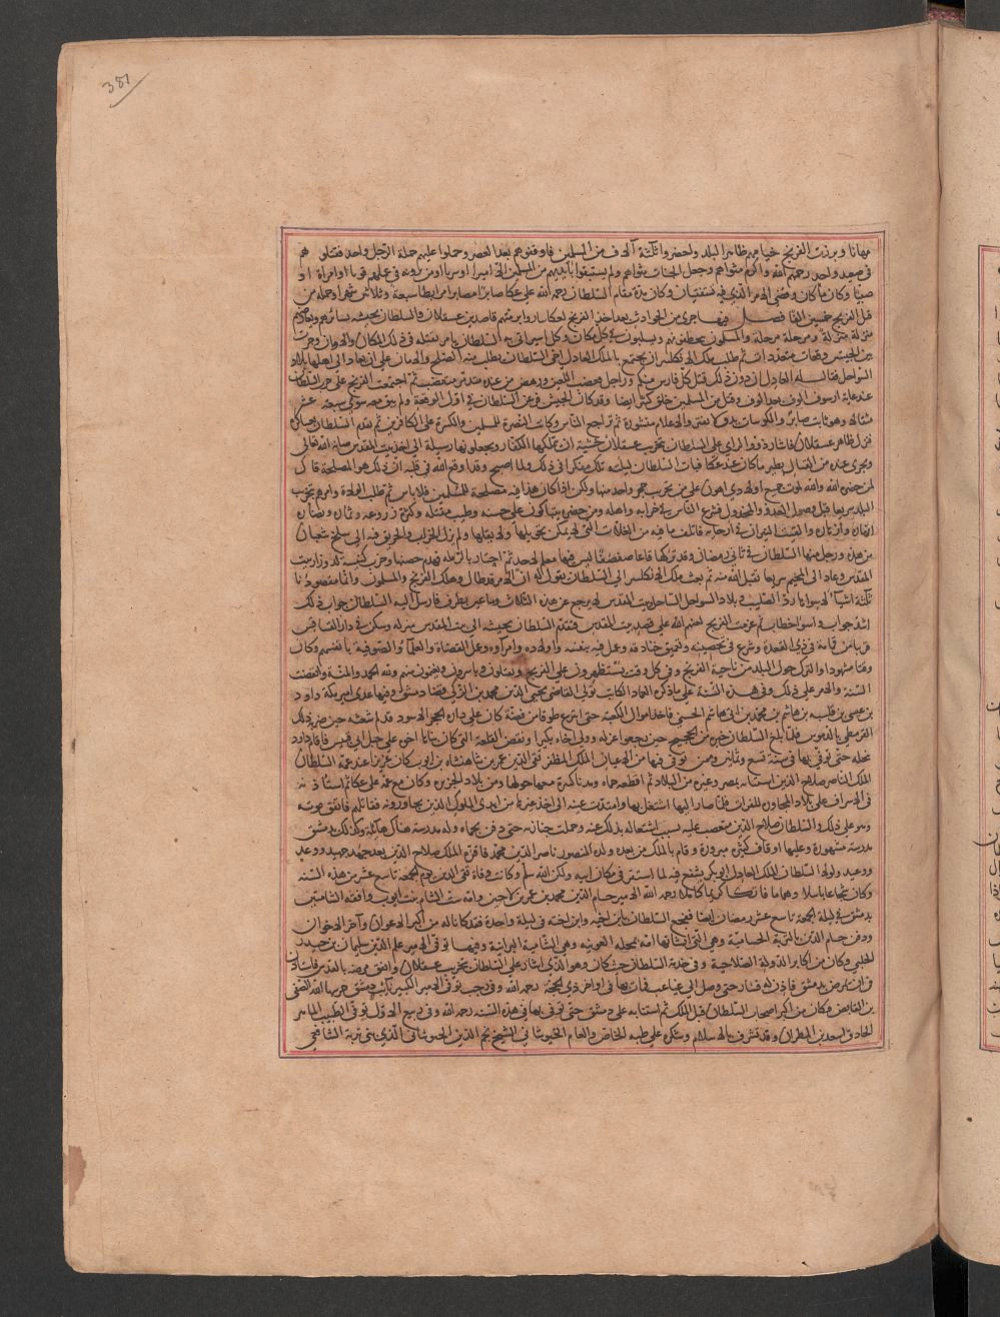 381
مهانا وبرزت الفرنج خيامهم ظاهر البلد واحضروا ثلثة آلاف من المسلمين فاوقفوهم بعد العصر وحملوا عليهم حملة الرجل واحد فقتلوهم
في صعيد واحد رحمهم الله واكرم مثواهم وجعل الجنات مثواهم ولم يستبقوا بايديهم من المسلمين الا اميرا او سريا او من رأوه في عملهم قويا او امراة او
صبيا وكان ما كان وقضى الامر الذي فيه تستفتيان وكان مدة مقام السلطان رحمه الله على عكا صابرا مصابرا مرابطا سبعة وثلاثين شهرا وجملة من
قتل الفرنج خمسين الفا فصل فيما جرى من الحوادث بعد اخذ الفرنج لعكا ساروا برمتهم قاصدين عسقلان والسلطان بجيشه يسايرهم ويعارضهم
منزلة منزلة ومرحلة مرحلة والمسلمون يتخطفونهم ويسلبونهم في كل مكان وكل اسير اتي به السلطان يامر بقتله في ذلك المكان وجرت
بين الجيشين وقعات متعددات ثم طلب ملك الانكلير ان يجتمع بالملك العادل اخي السلطان يطلب منه الصلح والامان على ان يعاد الى اهلها بلاد
السواحل فقال له العادل ان دون ذلك قتل كل فارس منكم وراجل فغضب اللعين ونهض من عنده ثم اجتمعت الفرنج على حرب السلطان
عند غابة ارسوف وقتل من المسلمين خلق كثير ايضا وقد كان الجيش فر عن السلطان في اول الوقعة ولم يبق معه سوى سبعة عشر
مقاتلا وهو ثابت صابر والكوسات تدق لا تفتر والاعلام منشورة ثم تراجع الناس وكانت النصرة للمسلمين والكسرة على الكافرين ثم تقدم السلطان بعساكره
فنزل ظاهر عسقلان فاشار ذوو الراي على السلطان بتخريب عسقلان خشية ان يتملكها الكفار ويجعلونها وسيلة الى اخذ بيت المقدس صانه الله تعالى
ويجري عنده من القتال نظير ما كان عند عكا فبات السلطان ليلته تلك مفكرا في ذلك ولما اصبح وقد اوقع الله في قلبه ان ذلك هو المصلحة قال
لمن حضره والله لموت جميع اولادي اهون علي من تخريب حجر واحد منها ولكن اذا كان هذا فيه مصلحة للمسلمين فلا باس ثم طلب الولاة وامرهم بتخريب
البلد سريعا قبل وصول العدو والمخذول فشرع الناس في خرابه واهله ومن حضره يتباكون على حسنه وطيب مقيله وكثرة زروعه وثماره ونضارة
انهاره وازهاره والقيت النيران في ارجائه فاتلف ما فيه من الغلات التي لا يمكن تحويلها ولا نقلها ولم يزل الخراب والحريق فيه الى سلخ شعبان
من هذه ورحل منها السلطان في ثاني رمضان وقد تركها قاعا صفصفا ليس فيها معلم لاحد ثم اجتاز بالرملة فهدم حصنها وخرب كنيسة لد وزار بيت
المقدس وعاد الى المخيم سريعا تقبل الله منه ثم بعث ملك الانكلير الى السلطان يقول له ان الامر قد طال وهلك الفرنج والمسلمون وانما مقصودنا
ثلثة اشياء لا سواها رد الصليب وبلاد السواحل وبيت المقدس لا نرجع عن هذه الثلاث ومنا عين تطرف فارسل اليه السلطان جواب ذلك
اشد جواب واسوا خطاب ثم عزمت الفرنج لعنهم الله على قصد بيت المقدس فتقدم السلطان بجيشه الى بيت المقدس نزله وسكن في دار القساقس
قريبا من قمامة في ذي القعدة وشرع في تحصينه وتعميق خنادقه وعمل فيه بنفسه واولاده وامراؤه وعمل القضاة والعلماء والصوفية بانفسهم وكان
وقتا مشهودا والترك حول البلد من ناحية الفرنج وفي كل وقت يستظهرون على الفرنج ويقتلون ويأسرون ويغنمون منهم ولله الحمد والمنة وانقضت
السنة والامر على ذلك وفي هذه السنة على ما ذكره العماد الكاتب تولى القاضي محيي الدين محمد بن الزكي قضاء دمشق وفيها عدي امير مكة داود
بن عيسى بن فليته بن هاشم بن محمد بن ابي هاشم الحسني فاخذ اموال الكعبة حتى انتزع طوقا من فضة كان على دائرة الحجر الاسود قد لم شعثه حين ضربه ذلك
القرمطي بالدبوس فلما بلغ السلطان خبره من الحجيج حين رجعوا عزله وولى اخاه بكيرا ونقض القلعة التي كان بناها اخوه على جبل ابي قبيس فاقام داود
نخلة حتى توفي بها في سنة تسع وثمانين وممن توفي فيها من الاعيان الملك المظفر تقي الدين عمر بن شاهنشاه بن ايوب كان عزيزا عند عمه السلطان
الملك الناصر صلاح الدين استنابه بمصر وغيره من البلاد ثم اقطعه حماه ومدنا كثيرة معها حولها ومن بلاد الجزيرة وكان مع عمه على عكا ثم استأذنه
في الاشراف على بلاده المجاورة للفرات فلما صار اليها اشتغل بها وامتدت عينه الى اخذ غيرها من ايدي الملوك الذين يجاورونه فقاتلهم فاتفق موته
وهو على ذلك والسلطان صلاح الدين متغضب عليه بسبب اشتغاله بذلك عنه وحملت جنازته حتى دفن بحماه وله مدرسة هناك هائلة وكذلك بدمشق
مدرسة مشهورة وعليها اوقاف كثيرة مبرورة وقام بالملك من بعده ولده المنصور ناصر الدين محمد فاقره الملك صلاح الدين بعد جهد جهيد ووعد
ووعيد ولولا السلطان الملك العادل ابو بكر تشفع فيه لما استقر في مكان ابيه ولكن الله سلم وكانت وفاة تقي الدين يوم الجمعة تاسع عشر من هذه السنة
وكان شجاعا باسلا وهماما فاتكا كريما كاملا رحمه الله الامير حسام الدين محمد بن عمر بن لاجين وامه ست الشام بنت ايوب واقفة الشاميتين
بدمشق في ليلة الجمعة تاسع عشر رمضان ايضا ففجع السلطان بابن اخيه وابن اخته في ليلة واحدة فقد كانا له من اكبر الاعوان وآخر الاخوان
ودفن حسام الدين بالتربة الحسامية وهي التي انشاتها امه بمحلة العوينة وهي الشامية البرانية وفيها توفي الامير علم الدين سليمان بن حيدر
الحلبي وكان من اكابر الدولة الصلاحية وفي خدمة السلطان حيث كان وهو الذي اشار على السلطان بتخريب عسقلان واتفق مرضه بالقدس فاستاذن
في ان يمرض بدمشق فاذن له فسار حتى وصل الى غباغب فمات بها في اواخر ذي الحجة رحمه الله وفي رجب توفي الامير الكبير نائب دمشق الصفي
بن القابض وكان من اكبر اصحاب السلطان قبل الملك ثم استنابه على دمشق حتى توفي بها في هذه السنة رحمه الله وفي ربيع الاول توفي الطبيب الماهر
الحاذق اسعد بن المطران وقد تشرف بالاسلام وشكره على طبه الخاص والعام الخبوشاني الشيخ نجم الدين الخبوشاني الذي بنى تربة الشافعي